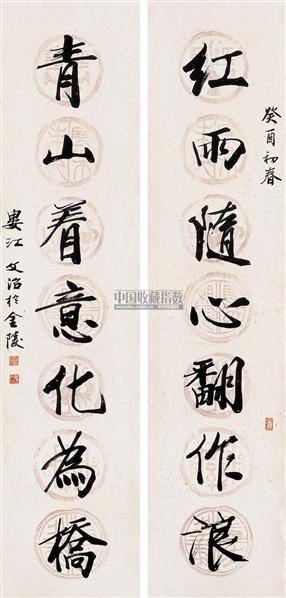 癸酉初春
红雨随心翻作浪
青山着意化為橋
婁江文治於金陵
中国收藏指数